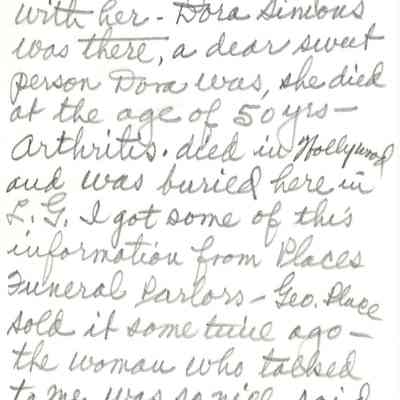 with her - Dora Simons
was there, a dear sweet
person Dora was, she died
at the age of 50 yrs -
Arthritis. died in Hollywood
and was buried here in
L. G. I got some of this
information from Places
Funeral Parlors - Geo. Place
sold it some time ago -
the woman who talked
to me was so nice, said